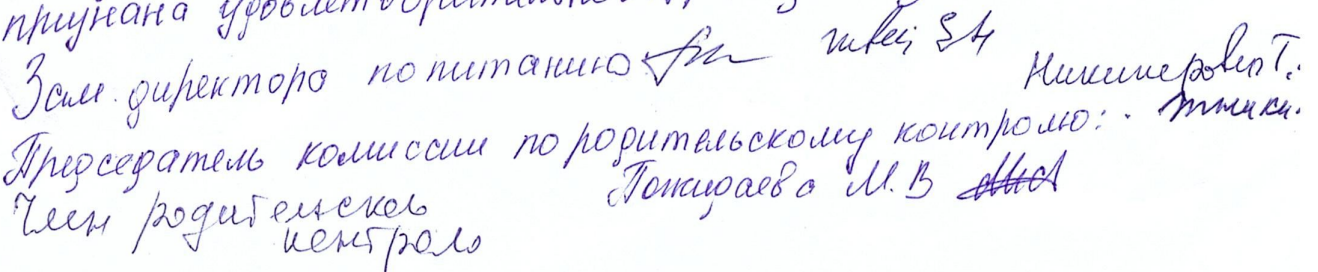 признана удовлетворительной
Зам. директора по питанию Швец З.А
Председатель комиссии по родительскому контролю:
Член родительского Пожидаева М.В
контроль